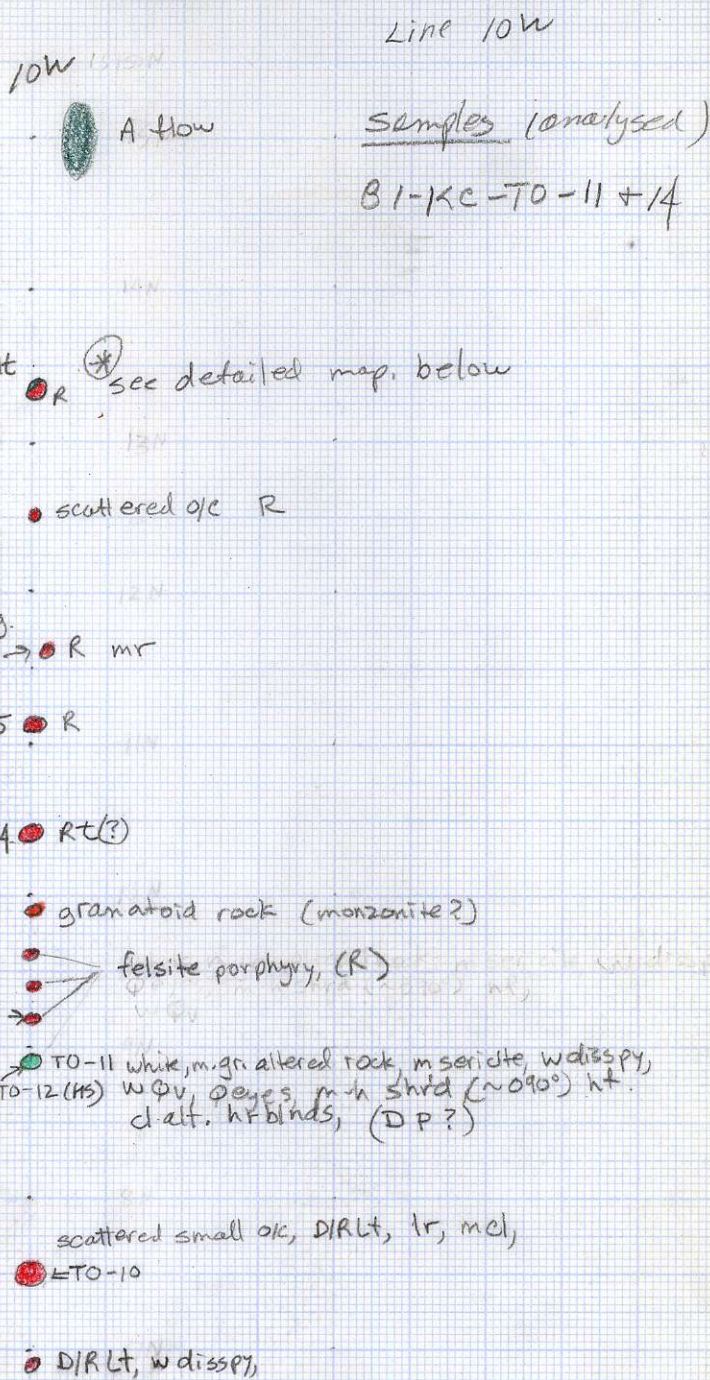 Line 10W
10W
A flow
Samples (analysed)
81-KC-TO-11 + 14
14N
* see detailed map. below
R
13N
scattered o/c R
12N
→ R mr
5 R
11N
4. Rt(?)
granatoid rock (monzonite?)
felsite porphyry, (R)
TO-11 white, m.gr. altered rock, m sericite, w disspy,
TO-12 (HS) w Qv, Qeyes, m-h shr'd (~090°) ht.
cl alt. hrblnds, (DP?)
scattered small o/c, D/RLt, lr, mcl,
TO-10
D/RLt, w disspy,